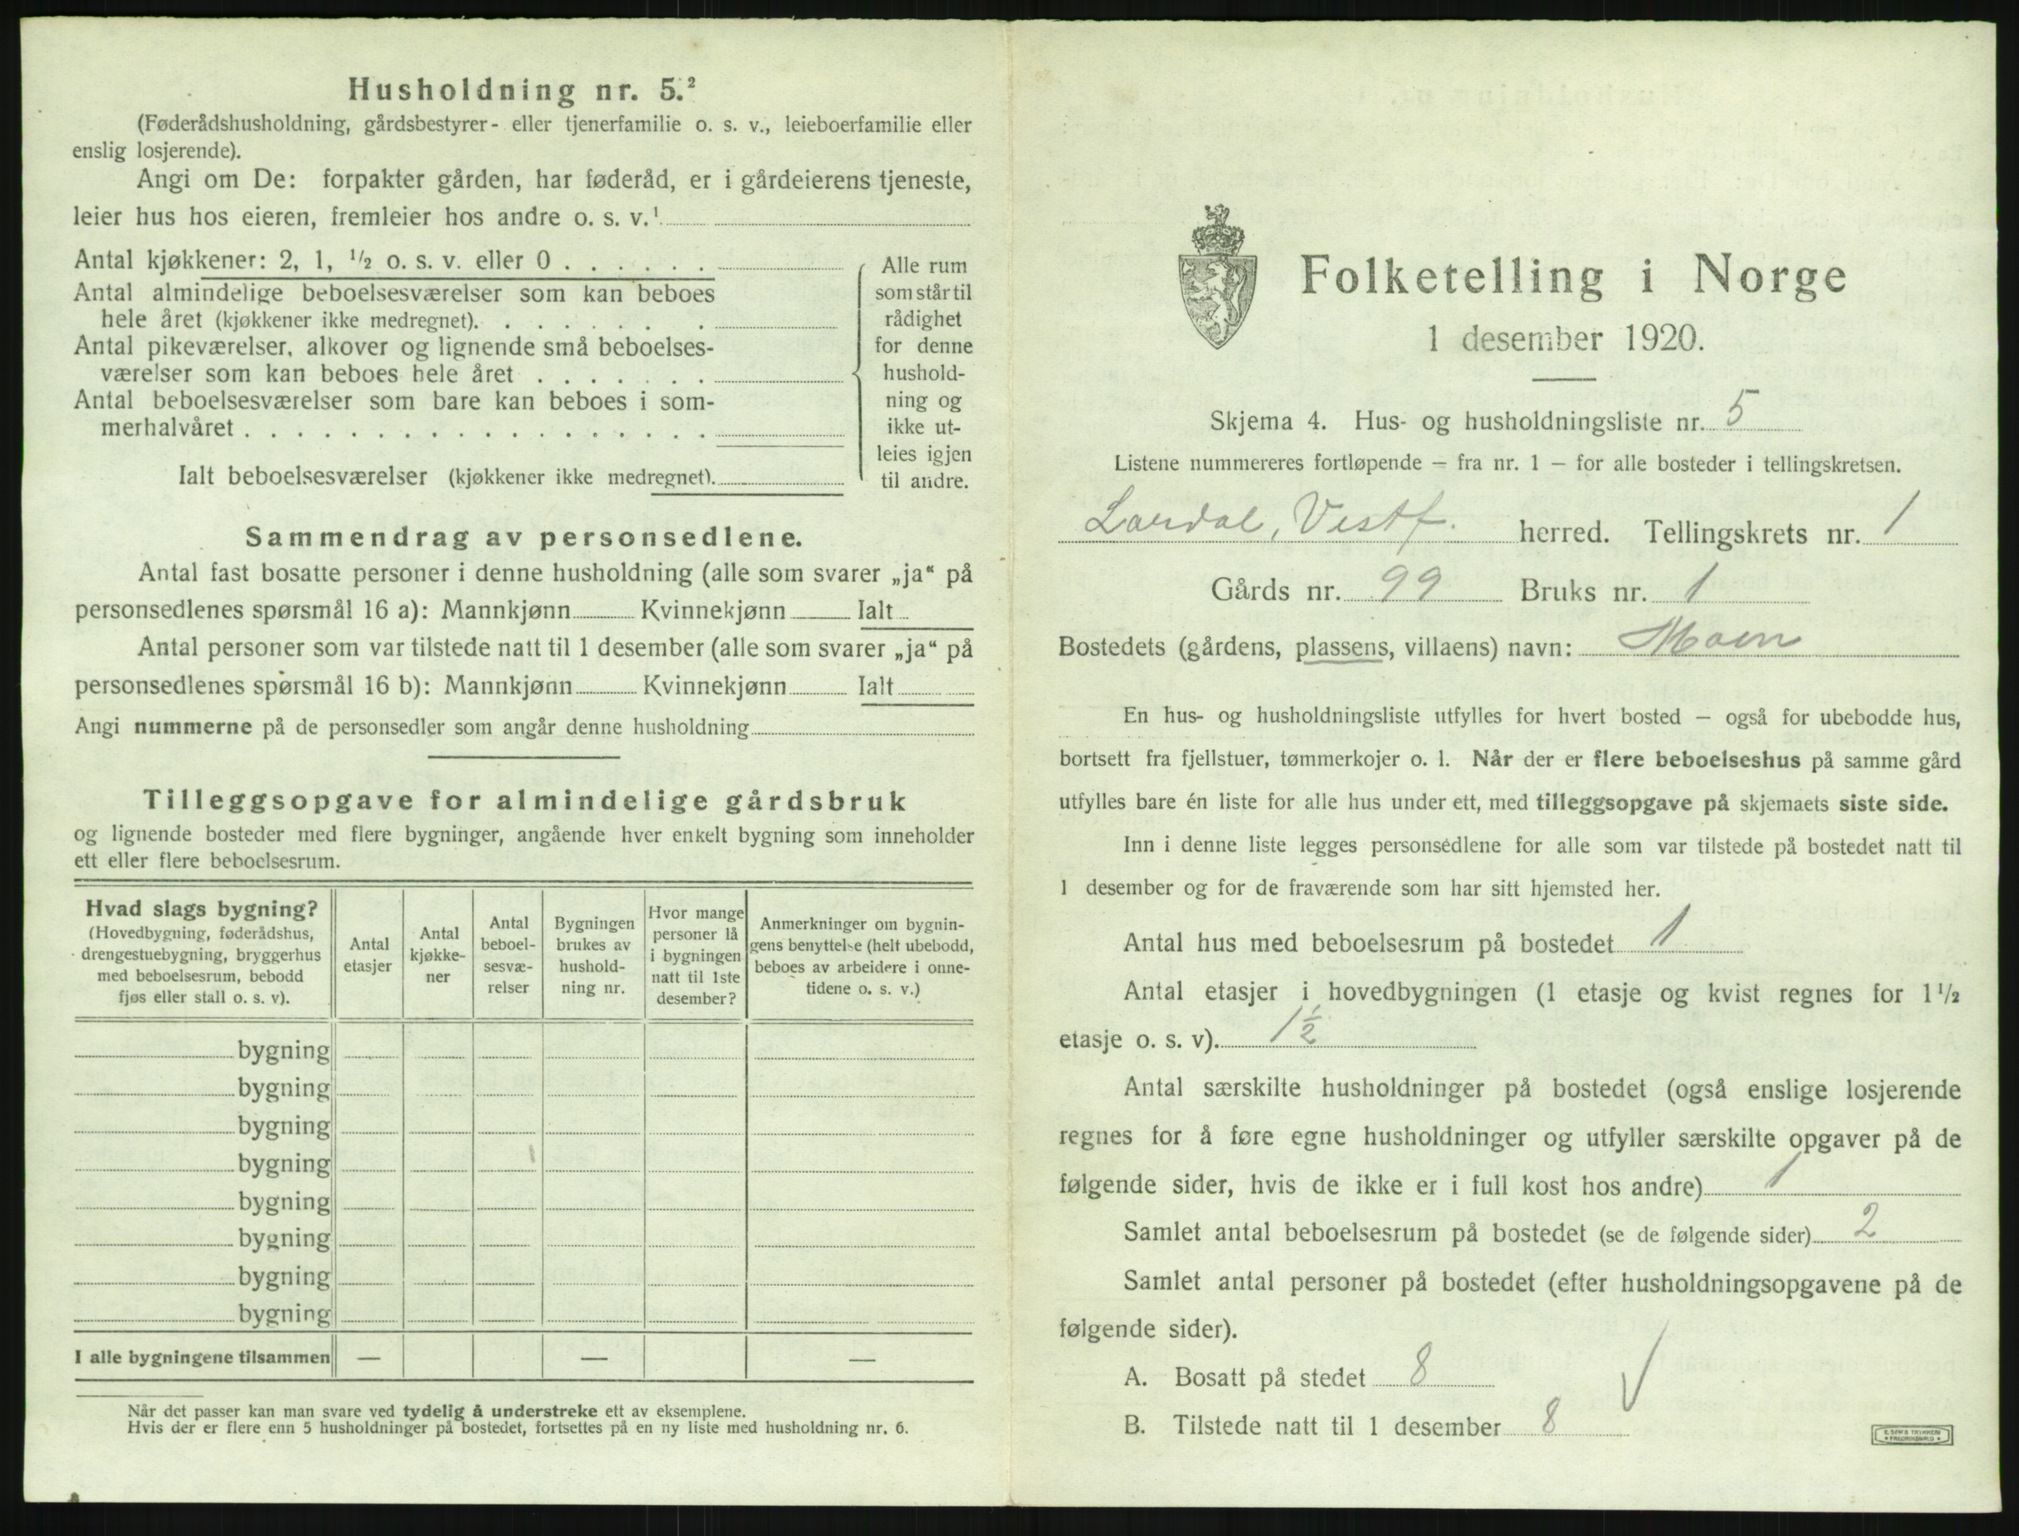 Husholdning nr. 5.²
(Føderådshusholdning, gårdsbestyrer- eller tjenerfamilie o. s. v., leieboerfamilie eller
enslig losjerende).
Angi om De: forpakter gården, har føderåd, er i gårdeierens tjeneste,
leier hus hos eieren, fremleier hos andre o. s. v.¹
Antal kjøkkener: 2, 1, ½ o. s. v. eller 0 . . . . . .
Antal almindelige beboelsesværelser som kan beboes
hele året (kjøkkener ikke medregnet). . . . . . . .
Antal pikeværelser, alkover og lignende små beboelses-
værelser som kan beboes hele året . . . . . . .
Antal beboelsesværelser som bare kan beboes i som-
merhalvåret . . . . . . . . . . . . . . . . . .
Ialt beboelsesværelser (kjøkkener ikke medregnet).
Alle rum
som står til
rådighet
for denne
hushold-
ning og
ikke ut-
leies igjen
til andre.
Sammendrag av personsedlene.
Antal fast bosatte personer i denne husholdning (alle som svarer „ja“ på
personsedlenes spørsmål 16 a): Mannkjønn Kvinnekjønn Ialt
Antal personer som var tilstede natt til 1 desember (alle som svarer „ja“ på
personsedlenes spørsmål 16 b): Mannkjønn Kvinnekjønn Ialt
Angi nummerne på de personsedler som angår denne husholdning
Tilleggsopgave for almindelige gårdsbruk
og lignende bosteder med flere bygninger, angående hver enkelt bygning som inneholder
ett eller flere beboelsesrum.
Hvad slags bygning?
(Hovedbygning, føderådshus,
drengestuebygning, bryggerhus
med beboelsesrum, bebodd
fjøs eller stall o. s. v).
Antal
etasjer
Antal
kjøkke-
ner
Antal
beboel-
sesvæ-
relser
Bygningen
brukes av
hushold-
ning nr.
Hvor mange
personer lå
i bygningen
natt til 1ste
desember?
Anmerkninger om bygnin-
gens benyttelse (helt ubebodd,
beboes av arbeidere i onne-
tidene o. s. v.)
bygning
bygning
bygning
bygning
bygning
bygning
bygning
bygning
I alle bygningene tilsammen — — —
Når det passer kan man svare ved tydelig å understreke ett av eksemplene.
Hvis der er flere enn 5 husholdninger på bostedet, fortsettes på en ny liste med husholdning nr. 6.
Folketelling i Norge
1 desember 1920.
Skjema 4. Hus- og husholdningsliste nr. 5
Listene nummereres fortløpende – fra nr. 1 – for alle bosteder i tellingskretsen.
Lardal, Vestf. herred. Tellingskrets nr. 1
Gårds nr. 99 Bruks nr. 1
Bostedets (gårdens, plassens, villaens) navn: Moen
En hus- og husholdningsliste utfylles for hvert bosted – også for ubebodde hus,
bortsett fra fjellstuer, tømmerkojer o. l. Når der er flere beboelseshus på samme gård
utfylles bare én liste for alle hus under ett, med tilleggsopgave på skjemaets siste side.
Inn i denne liste legges personsedlene for alle som var tilstede på bostedet natt til
1 desember og for de fraværende som har sitt hjemsted her.
Antal hus med beboelsesrum på bostedet 1
Antal etasjer i hovedbygningen (1 etasje og kvist regnes for 1½
etasje o. s. v). 1½
Antal særskilte husholdninger på bostedet (også enslige losjerende
regnes for å føre egne husholdninger og utfyller særskilte opgaver på de
følgende sider, hvis de ikke er i full kost hos andre) 1
Samlet antal beboelsesrum på bostedet (se de følgende sider) 2
Samlet antal personer på bostedet (efter husholdningsopgavene på de
følgende sider).
A. Bosatt på stedet 8
B. Tilstede natt til 1 desember 8